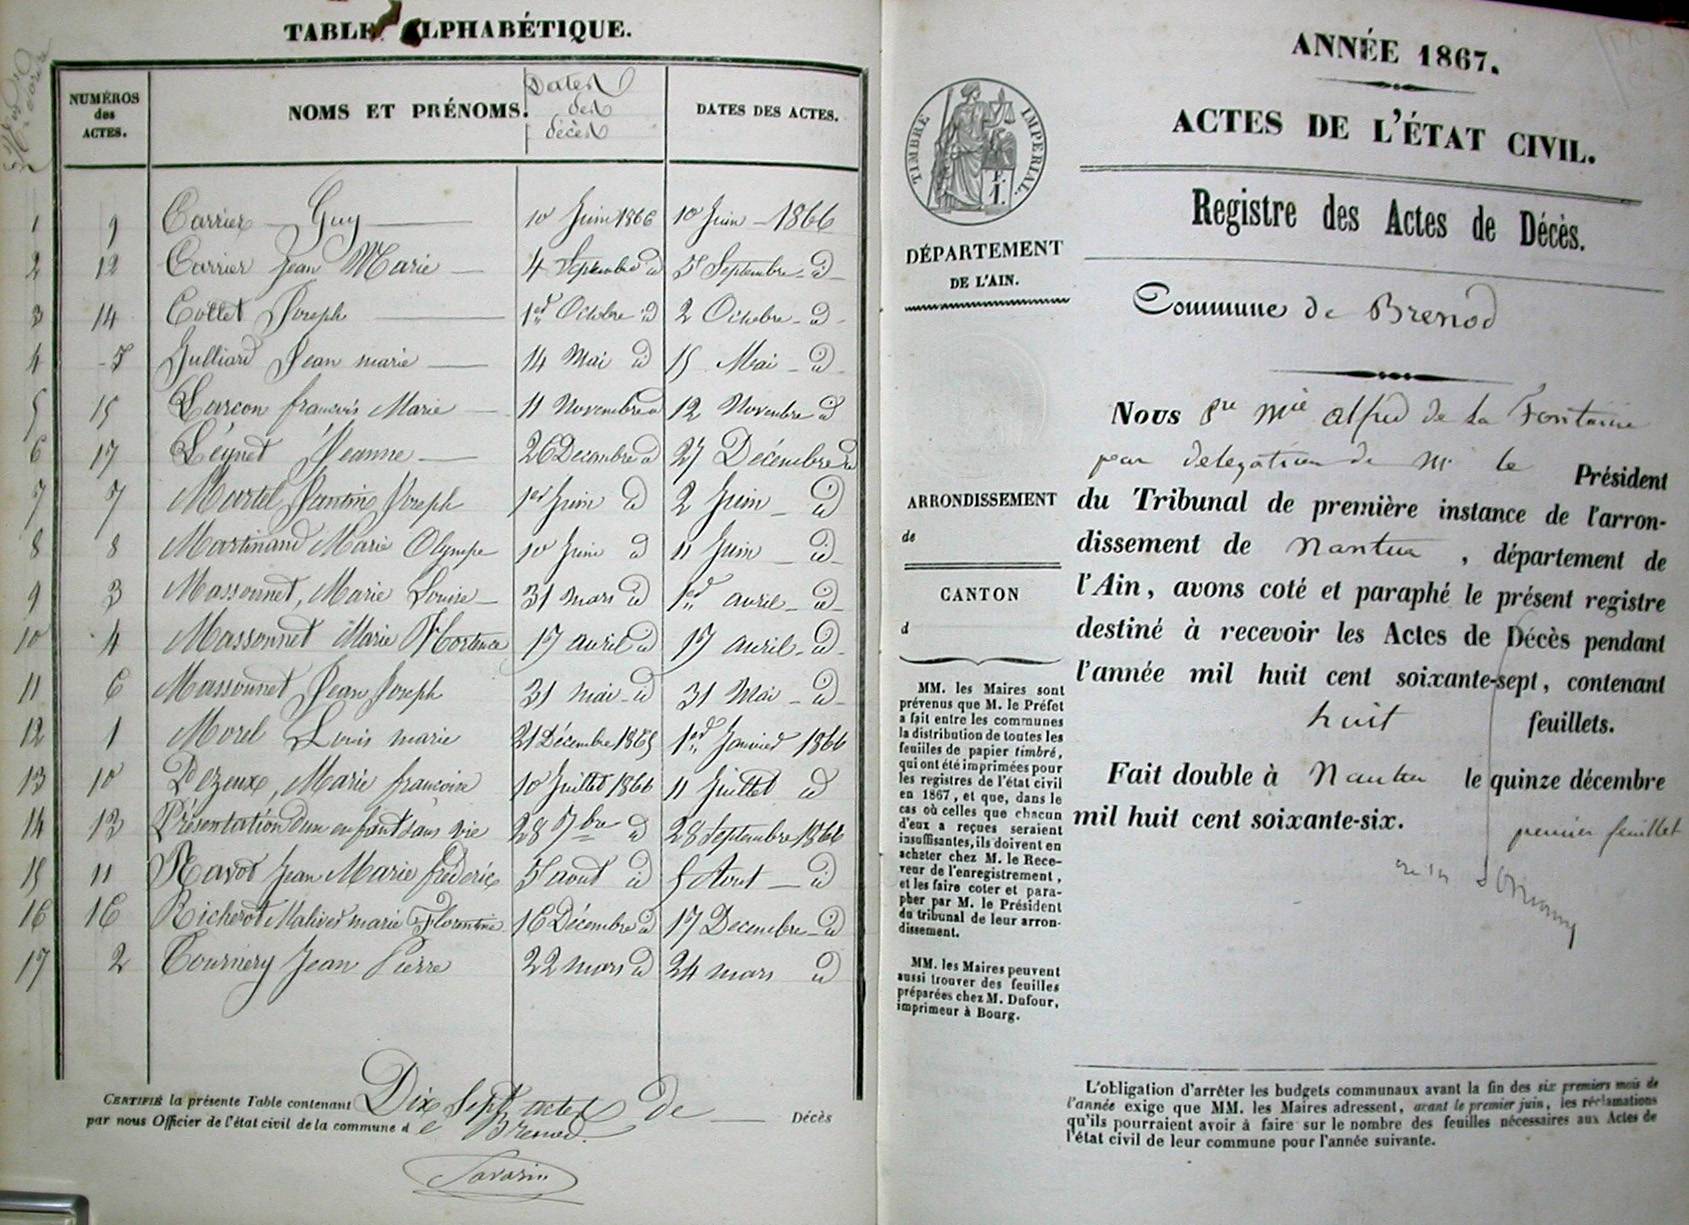 TABLE ALPHABÉTIQUE.
NUMÉROS des ACTES.
NOMS ET PRÉNOMS.
Dates des décès
DATES DES ACTES.
1 9 Carrier Guy 10 Juin 1866 10 Juin 1866
2 12 Carrier Jean Marie 4 Septembre id 5 Septembre id
3 14 Collet Joseph 1er Octobre id 2 Octobre id
4 5 Julliard Jean marie 14 Mai id 15 Mai id
5 15 Larcon francois Marie 11 Novembre id 12 Novembre id
6 17 Léynet Jeanne 26 Décembre id 27 Décembre id
7 7 Martel Joseph 1er Juin id 2 Juin id
8 8 Martinand Marie Olympe 10 Juin id 11 Juin id
9 3 Massonnet, Marie Louise 31 mars id 1er avril id
10 4 Massonnet Marie Hortence 17 avril id 17 avril id
11 6 Massonnet Jean Joseph 31 mai id 31 Mai id
12 1 Morel Louis marie 21 Décembre 1865 1er Janvier 1866
13 10 Marie françoise 10 Juillet 1866 11 Juillet id
14 13 Présentation d'un enfant sans vie 28 7bre id 28 Septembre 1866
15 11 Ravot Jean Marie fréderic 5 aout id 5 Aout id
16 16 Richerot marie Florentine 16 Décembre id 17 Decembre id
17 2 Tournery Jean Pierre 22 mars id 24 mars id
CERTIFIÉ la présente Table contenant Dix Sept actes de Décès
par nous Officier de l'état civil de la commune d e Brenod.
Savarin
ANNÉE 1867.
ACTES DE L'ÉTAT CIVIL.
Registre des Actes de Décès.
TIMBRE IMPERIAL.
1 F.
DÉPARTEMENT
DE L'AIN.
ARRONDISSEMENT
de
CANTON
d
MM. les Maires sont
prévenus que M. le Préfet
a fait entre les communes
la distribution de toutes les
feuilles de papier timbré,
qui ont été imprimées pour
les registres de l'état civil
en 1867, et que, dans le
cas où celles que chacun
d'eux a reçues seraient
insuffisantes, ils doivent en
acheter chez M. le Rece-
veur de l'enregistrement,
et les faire coter et para-
pher par M. le Président
du tribunal de leur arron-
dissement.
MM. les Maires peuvent
aussi trouver des feuilles
préparées chez M. Dufour,
imprimeur à Bourg.
Commune de Brenod
Nous Pre Mie alfred de La Fontaine
par delegation de Mr le Président
du Tribunal de première instance de l'arron-
dissement de Nantua, département de
l'Ain, avons coté et paraphé le présent registre
destiné à recevoir les Actes de Décès pendant
l'année mil huit cent soixante-sept, contenant
huit feuillets.
Fait double à Nantua le quinze décembre
mil huit cent soixante-six.
premier feuillet
L'obligation d'arrêter les budgets communaux avant la fin des six premiers mois de
l'année exige que MM. les Maires adressent, avant le premier juin, les réclamations
qu'ils pourraient avoir à faire sur le nombre des feuilles nécessaires aux Actes de
l'état civil de leur commune pour l'année suivante.